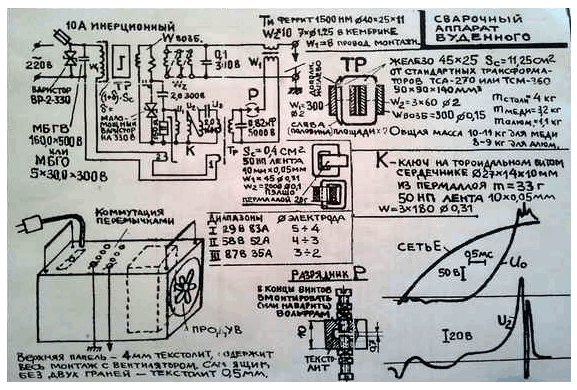 10А ИНЕРЦИОННЫЙ
~220В
ВАРИСТОР
ВР-2-330
МБГВ
160,0×500В
ИЛИ
МБГО
5×30,0×300В
W ВОЗБ.
ТР
МАЛО-
МОЩНЫЙ
ВАРИСТОР
НА 330В
W2
2,0 300В
0,1
310В
К
Р
0,82мк
5000В
Тр
Ти ФЕРРИТ 1500 НМ Ø40×25×11
W2=10 7×Ø1,25 В КЕМБРИКЕ
W1=8 ПРОВОД МОНТАЖН.
СВАРОЧНЫЙ
АППАРАТ
БУДЕННОГО
ТР
W1=300
Ø2
СЛЕВА
(ПОЛОВИНА) ПЛОЩАДИ
ЖЕЛЕЗО 45×25 Sc=11,25см²
ОТ СТАНДАРТНЫХ ТРАНСФОРМА-
ТОРОВ ТСА-270 ИЛИ ТСМ-360
90×90×140мм³
W2=3×60 Ø2
W ВОЗБ=300 Ø0,15
m СТАЛИ 4 кг
m МЕДИ 3,2 кг
ОБЩАЯ МАССА 10-11 кг ДЛЯ МЕДИ
8-9 кг ДЛЯ АЛЮМ.
Sc=0,4 СМ²
50 НП ЛЕНТА
10мм×0,05мм
W1=45 Ø0,31
W2=2000 Ø0,1
ПЭЛШО
ПЕРМАЛЛОЙ 28г
К-КЛЮЧ НА ТОРОИДАЛЬНОМ ВИТОМ
СЕРДЕЧНИКЕ Ø27×14×10мм
ИЗ ПЕРМАЛЛОЯ m=33г
50 НП ЛЕНТА 10×0,05мм
W=3×180 Ø0,31
КОММУТАЦИЯ
ПЕРЕМЫЧКАМИ
ПРОДУВ
ДИАПАЗОНЫ Ø ЭЛЕКТРОДА
I 29В 83А 5÷4
II 58В 52А 4÷3
III 87В 35А 3÷2
РАЗРЯДНИК Р
В КОНЦЫ ВИНТОВ
ВМОНТИРОВАТЬ
(ИЛИ НАВАРИТЬ)
ВОЛЬФРАМ
10
ТЕКСТО-
ЛИТ
СЕТЬЕ
0,5мс
50В
U0
20В
U2
ВЕРХНЯЯ ПАНЕЛЬ – 4мм ТЕКСТОЛИТ, СОДЕРЖИТ
ВЕСЬ МОНТАЖ С ВЕНТИЛЯТОРОМ. САМ ЯЩИК
БЕЗ ДВУХ ГРАНЕЙ – ТЕКСТОЛИТ 0,5мм.